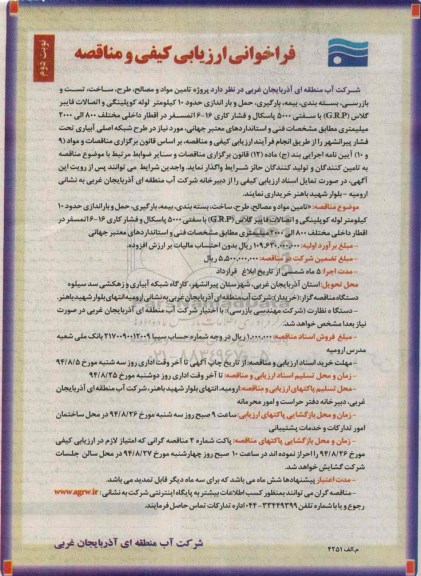 نوبت دوم
فراخوانی ارزیابی کیفی و مناقصه
شرکت آب منطقه ای آذربایجان غربی در نظر دارد پروژه تامین مواد و مصالح، طرح، ساخت، تست و
بازرسی، بسته بندی، بیمه، بارگیری، حمل و بار اندازی حدود ۱۰ کیلومتر لوله کوپلینگی و اتصالات فایبر
گلاس (G.R.P) با سفتی ۵۰۰۰ پاسکال و فشار کاری ۱۶-۶ اتمسفر در اقطار داخلی مختلف ۸۰۰ الی ۲۰۰۰
میلیمتری مطابق مشخصات فنی و استانداردهای معتبر جهانی، مورد نیاز در طرح شبکه اصلی آبیاری تحت
فشار پیرانشهر را از طریق انجام فرآیند ارزیابی کیفی و مناقصه، بر اساس قانون برگزاری مناقصات و مواد (۹
و ۱۰) آیین نامه اجرایی بند (ج) ماده (۱۲) قانون برگزاری مناقصات و سایر ضوابط مرتبط با موضوع مناقصه
به تامین کنندگان و تولید کنندگان حائز شرایط واگذار نماید. واجدین شرایط می توانند پس از رویت این
آگهی، در صورت تمایل اسناد ارزیابی کیفی را از دبیرخانه شرکت آب منطقه ای آذربایجان غربی به نشانی
ارومیه - بلوار شهید باهنر خریداری نمایند.
موضوع مناقصه: «تامین مواد و مصالح، طرح، ساخت، بسته بندی، بیمه، بارگیری، حمل و باراندازی حدود ۱۰
کیلومتر لوله کوپلینگی و اتصالات فایبر گلاس (G.R.P) با سفتی ۵۰۰۰ پاسکال و فشار کاری ۱۶-۶ اتمسفر در
اقطار داخلی مختلف ۸۰۰ الی ۲۰۰۰ میلیمتری مطابق مشخصات فنی و استانداردهای معتبر جهانی
- مبلغ برآورد اولیه: ۱۰۹,۶۳۰,۰۰۰,۰۰۰ ریال بدون احتساب مالیات بر ارزش افزوده.
- مبلغ تضمین شرکت در مناقصه: ۵,۵۰۰,۰۰۰,۰۰۰ ریال
- مدت اجرا: ۵ ماه شمسی از تاریخ ابلاغ قرارداد
محل تحویل: استان آذربایجان غربی، شهرستان پیرانشهر، کارگاه شبکه آبیاری و زهکشی سد سیلوه
دستگاه مناقصه گزار (خریدار): شرکت آب منطقه ای آذربایجان غربی به نشانی ارومیه انتهای بلوار شهید باهنر.
- دستگاه نظارت (شرکت مهندسی بازرسی): با اختیار شرکت آب منطقه ای آذربایجان غربی در صورت
نیاز بعدا مشخص خواهد شد.
- مبلغ فروش اسناد مناقصه: ۱,۰۰۰,۰۰۰ ریال در وجه شماره حساب سیبا ۲۱۷۰۰۹۰۱۲۰۰۹ بانک ملی شعبه
مدرس ارومیه
- مهلت خرید اسناد ارزیابی و مناقصه: از تاریخ چاپ آگهی تا آخر وقت اداری روز سه شنبه مورخ ۹۴/۸/۵
- زمان و محل تسلیم اسناد ارزیابی و مناقصه: تا آخر وقت اداری روز دوشنبه مورخ ۹۴/۸/۲۵
- محل تسلیم پاکتهای ارزیابی و مناقصه: ارومیه، انتهای بلوار شهید باهنر، شرکت آب منطقه ای آذربایجان
غربی، دبیرخانه دفتر حراست و امور محرمانه
- زمان و محل بازگشایی پاکتهای ارزیابی: ساعت ۹ صبح روز سه شنبه مورخ ۹۴/۸/۲۶ در محل ساختمان
امور تدارکات و خدمات پشتیبانی
- زمان و محل بازگشایی پاکتهای مناقصه: پاکت شماره ۲ مناقصه گرانی که امتیاز لازم در ارزیابی کیفی
مورخ ۹۴/۸/۲۶ را احراز نموده اند در ساعت ۱۰ صبح روز چهارشنبه مورخ ۹۴/۸/۲۷ در محل سالن جلسات
شرکت گشایش خواهد شد.
- مدت اعتبار پیشنهادها شش ماه می باشد که برای سه ماه دیگر قابل تمدید می باشد.
- مناقصه گران می توانند بمنظور کسب اطلاعات بیشتر به پایگاه اینترنتی شرکت به نشانی: www.agrw.ir
رجوع و یا با شماره تلفن ۳۳۴۴۹۳۹۹-۰۴۴ اداره تدارکات تماس حاصل فرمایند.
شرکت آب منطقه ای آذربایجان غربی
م.الف ۴۲۵۱